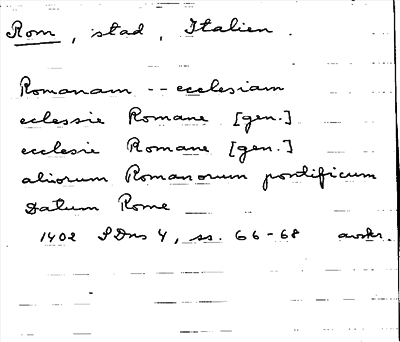 Rom, stad, Italien.
Romanam -- ecclesiam
eclessie Romane [gen.]
ecclesie Romane [gen.]
aliorum Romanorum pontificum
Datum Rome
1402 SDns 4, ss. 66-68 avskr.